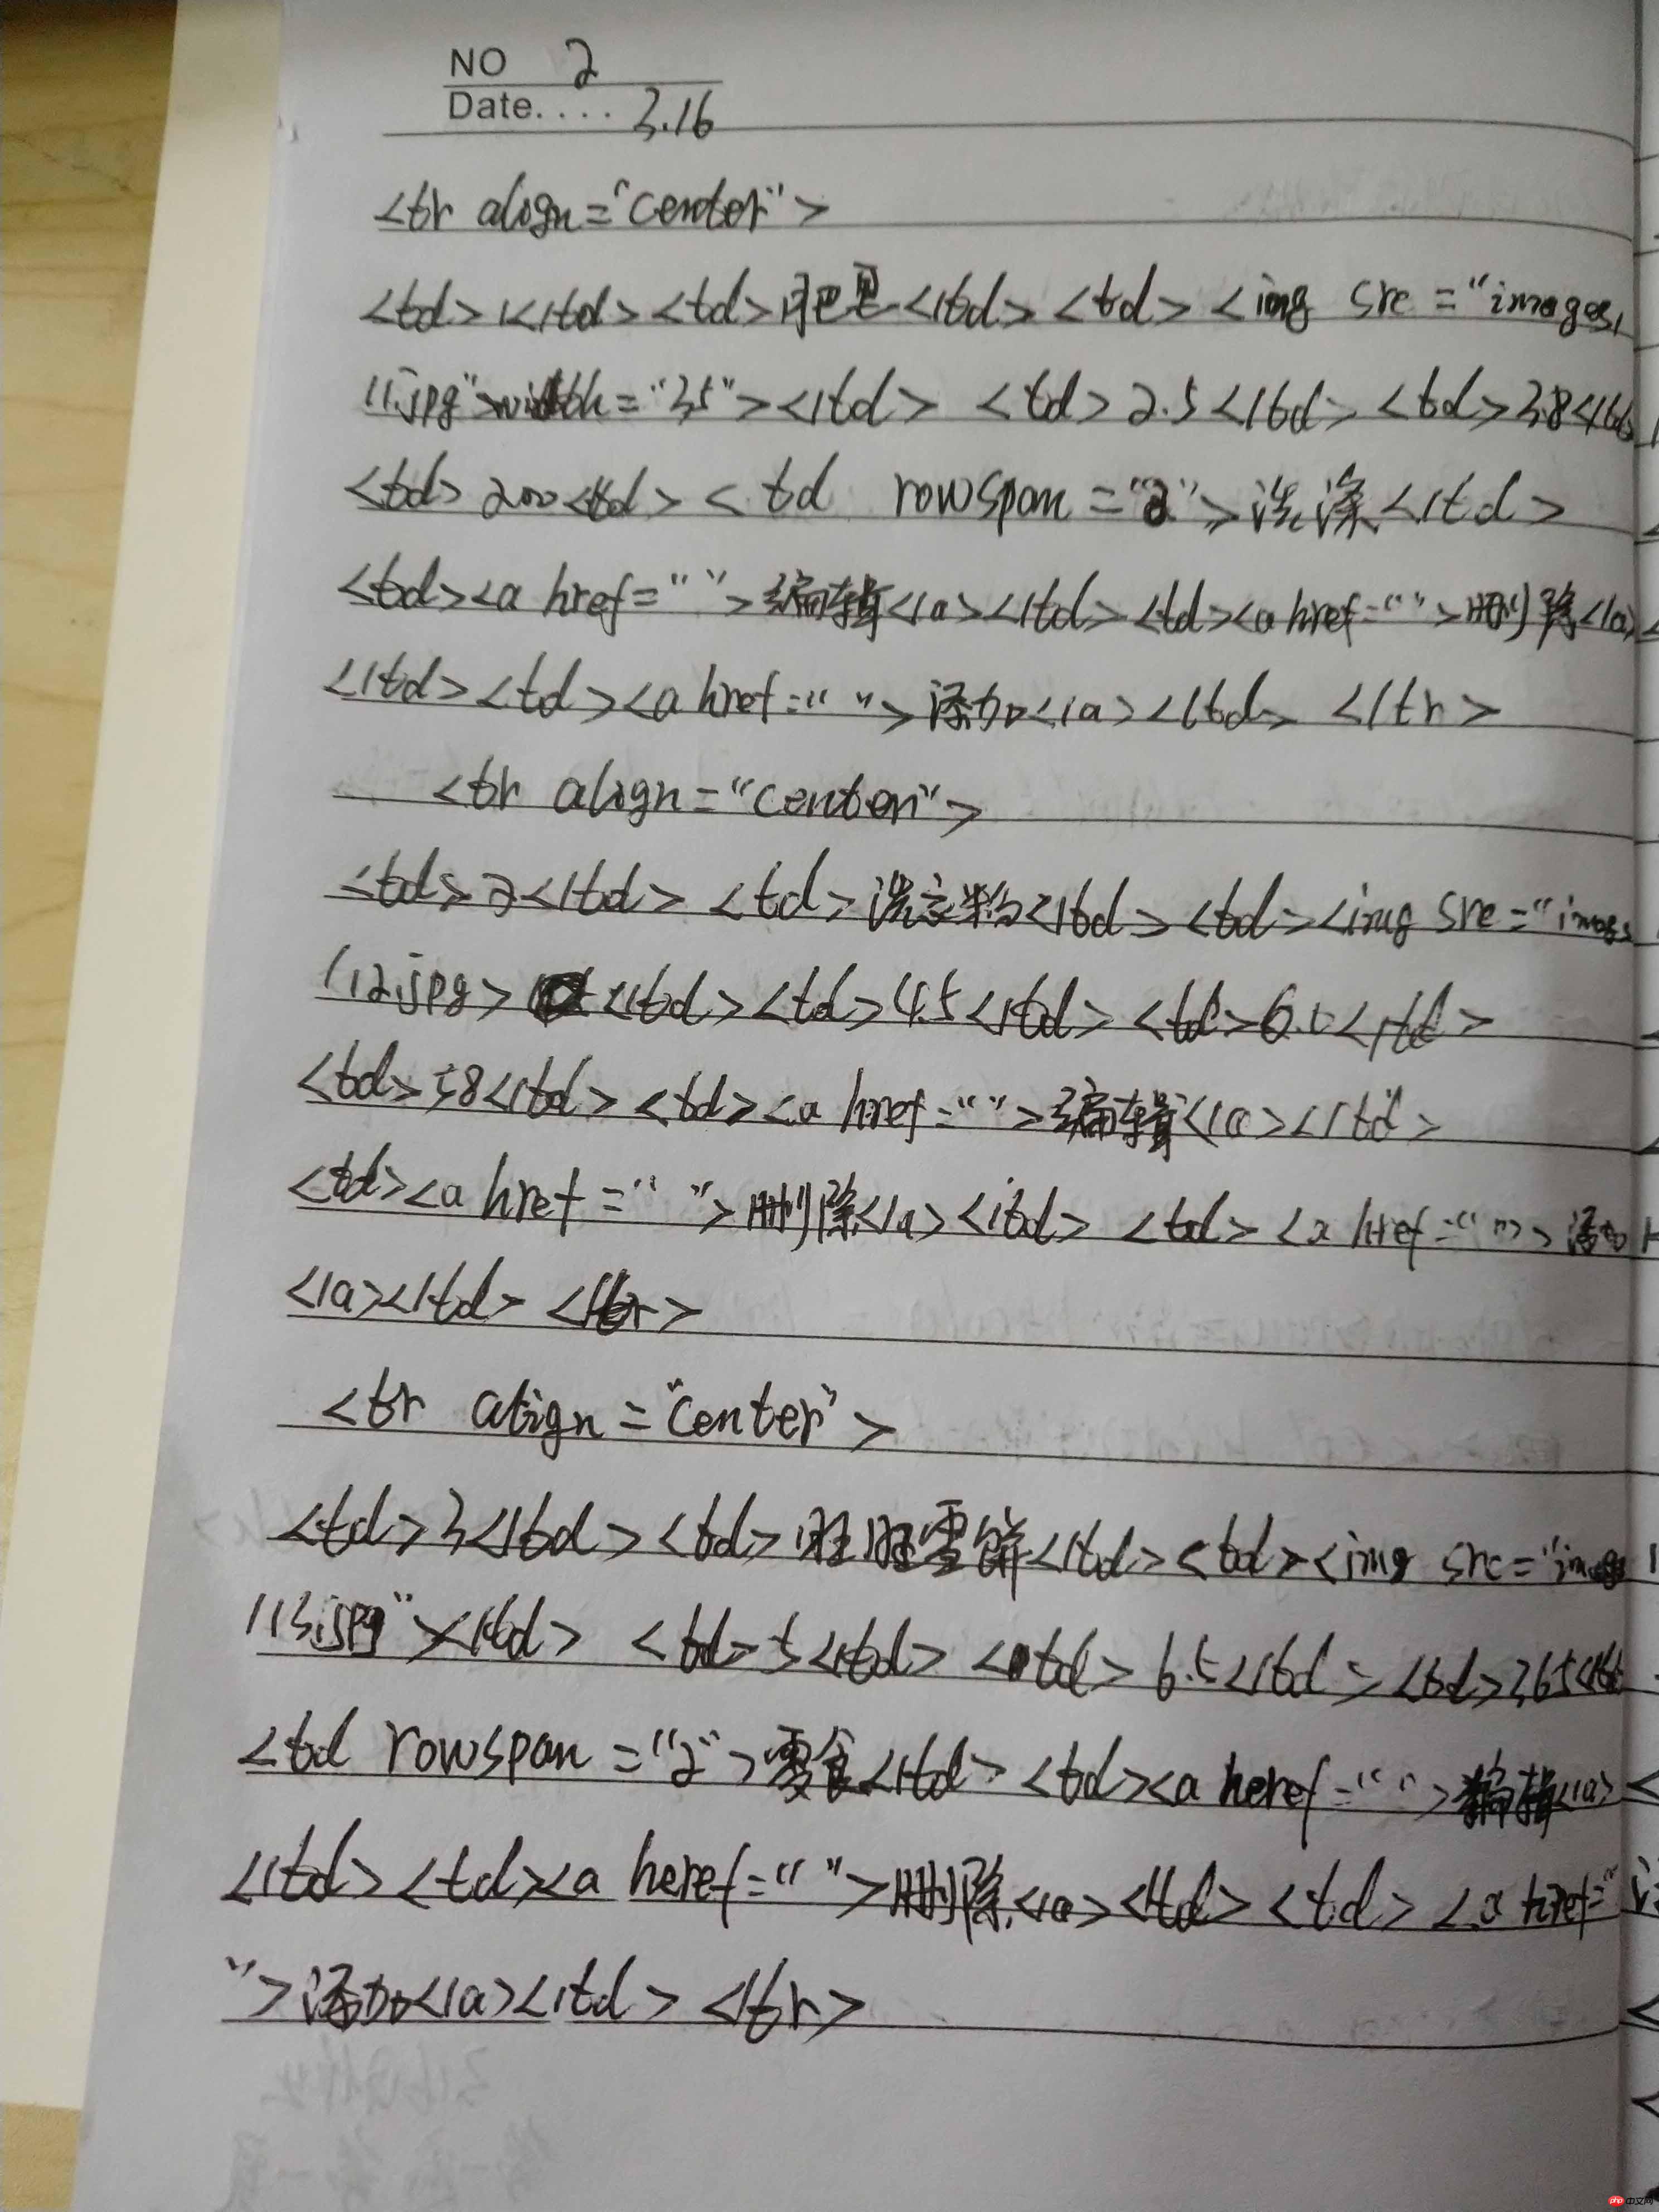 NO 2
Date.... 3.16
<tr align="center">
<td>1</td><td>肥皂</td><td><img src="images/
11.jpg" width="35"></td> <td>2.5</td><td>3.8</td>
<td>200</td><td rowspan="2">洗涤</td>
<td><a href="">编辑</a></td><td><a href="">删除</a>
</td><td><a href="">添加</a></td></tr>
<tr align="center">
<td>2</td><td>洗衣粉</td><td><img src="images
/12.jpg></td><td>4.5</td><td>6.0</td>
<td>58</td><td><a href="">编辑</a></td>
<td><a href="">删除</a></td><td><a href="">添加
</a></td></tr>
<tr align="center">
<td>3</td><td>旺旺雪饼</td><td><img src="images
/13.jpg"></td> <td>5</td><td>6.5</td><td>365</td>
<td rowspan="2">零食</td><td><a heref="">编辑</a>
</td><td><a heref="">删除</a></td><td><a href="
">添加</a></td></tr>
php中文网